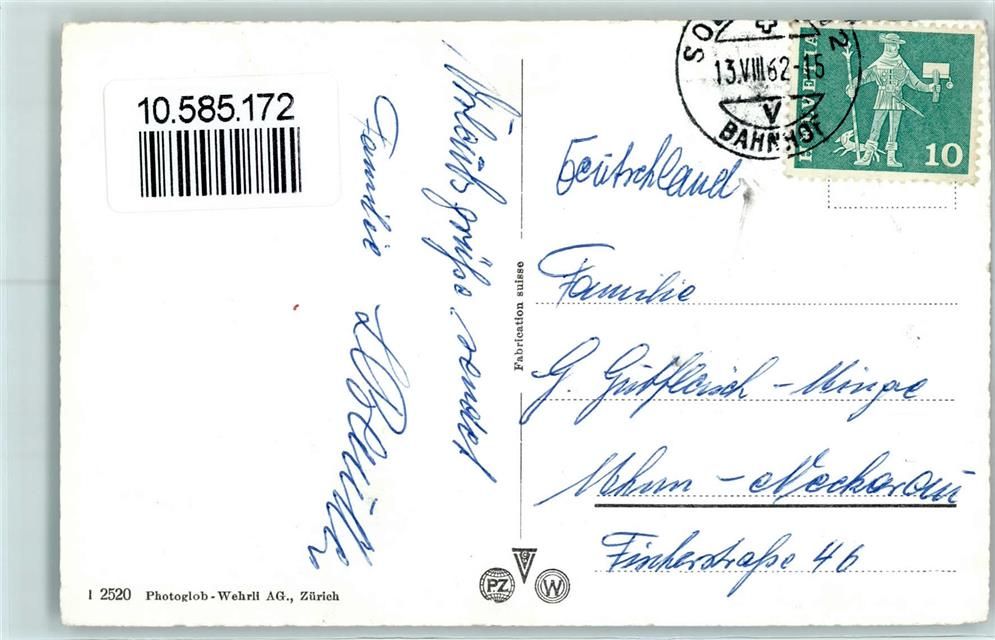 10.585.172
Urlaubsgrüße sendet
Familie
Deutschland
Familie
G. Gutfleisch - Minge
Mhm - Neckarau
Fischerstraße 46
SO 2
13.VIII.62-15
V
BAHNHOF
HELVETIA
10
Fabrication suisse
PZ
W
1 2520 Photoglob-Wehrli AG., Zürich